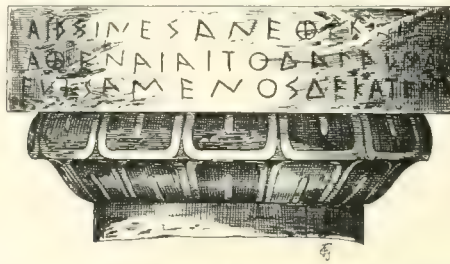 ΑΙΣΧΙΝΕΣΑΝΕΘΕΚΕΝ
ΑΘΕΝΑΙΑΙΤΟΔΑΓΑΛΜΑ
ΕΥΧΣΑΜΕΝΟΣΔΕΚΑΤΕΝ